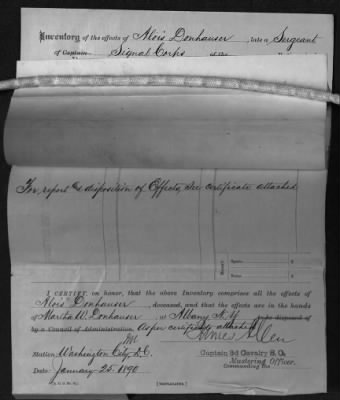 Inventory of the effects of Alois Donhauser, late a Sergeant
of Captain Signal Corps
For, report & disposition of Effects, see certificate attached
I CERTIFY, on honor, that the above Inventory comprises all the effects of
Alois Donhauser, deceased, and that the effects are in the hands
of Martha W. Donhauser, at Albany N.Y. to be disposed of
by a Council of Administration. As per certificate attached
James Allen
Captain 3d Cavalry S. O.,
Station: Washington City, D.C.
Mustering Officer.
Commanding the
Date: January 25, 1890.